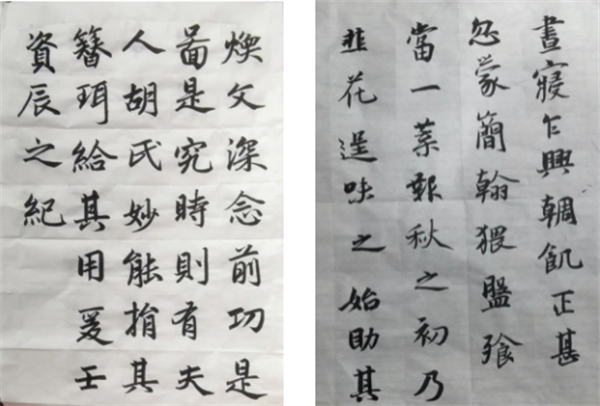 煥文深念前功是
啚是究時則有夫
人胡氏妙能捐其
簪珥給其用爰壬
資辰之紀
晝寢乍興輖飢正甚
忽蒙簡翰猥盤飱
當一葉報秋之初乃
韭花逞味之始助其